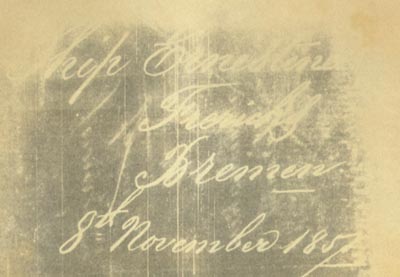 Ship Ernestine
Bremen
8th November 185